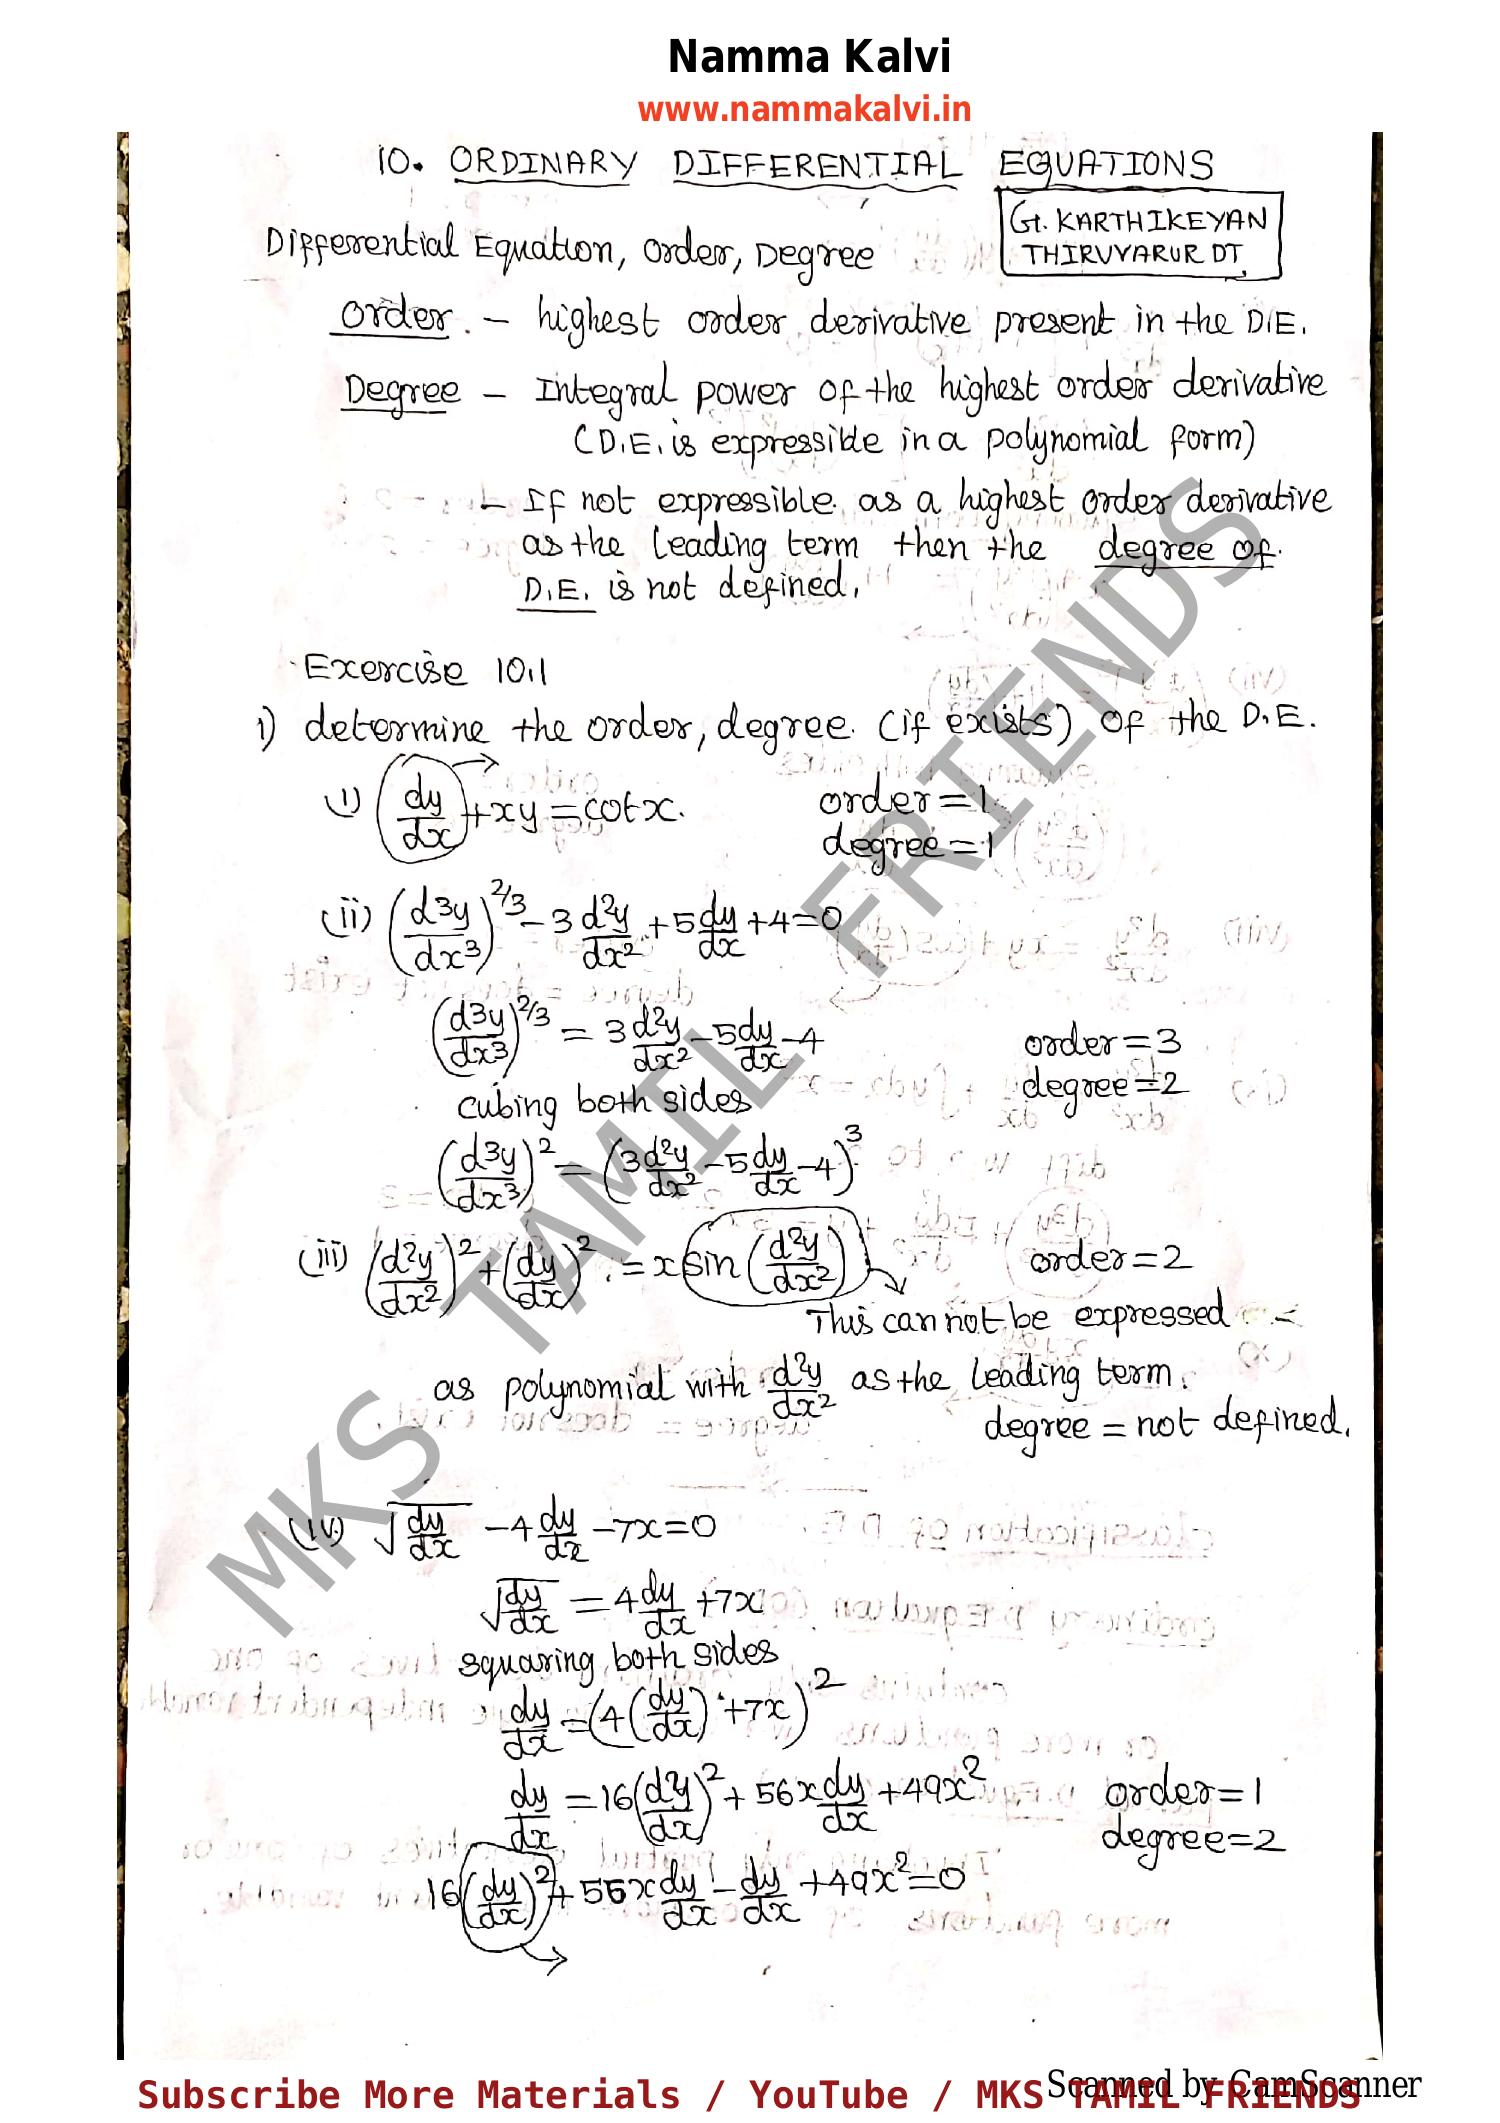 Namma Kalvi
www.nammakalvi.in
10. ORDINARY DIFFERENTIAL EQUATIONS
G. KARTHIKEYAN
THIRUVARUR DT.
Differential Equation, Order, Degree
Order. - highest order derivative present in the D.E.
Degree - Integral power of the highest order derivative
(D.E. is expressible in a polynomial form)
- If not expressible as a highest order derivative
as the leading term then the degree of
D.E. is not defined.
Exercise 10.1
1) determine the order, degree (if exists) of the D.E.
(i) dy/dx + xy = cot x. order = 1
degree = 1
(ii) (d³y/dx³)^2/3 - 3 d²y/dx² + 5 dy/dx + 4 = 0
(d³y/dx³)^2/3 = 3 d²y/dx² - 5 dy/dx - 4 order = 3
degree = 2
cubing both sides
(d³y/dx³)² = (3 d²y/dx² - 5 dy/dx - 4)³
(iii) (d²y/dx²)² + (dy/dx)² = x sin (d²y/dx²) order = 2
This can not be expressed
as polynomial with d²y/dx² as the leading term.
degree = not defined.
(iv) √dy/dx - 4 dy/dx - 7x = 0
√dy/dx = 4 dy/dx + 7x
squaring both sides
dy/dx = (4(dy/dx) + 7x)²
dy/dx = 16(dy/dx)² + 56x dy/dx + 49x² order = 1
degree = 2
16(dy/dx)² + 56x dy/dx - dy/dx + 49x² = 0
MKS TAMIL FRIENDS
Scanned by CamScanner
Subscribe More Materials / YouTube / MKS TAMIL FRIENDS